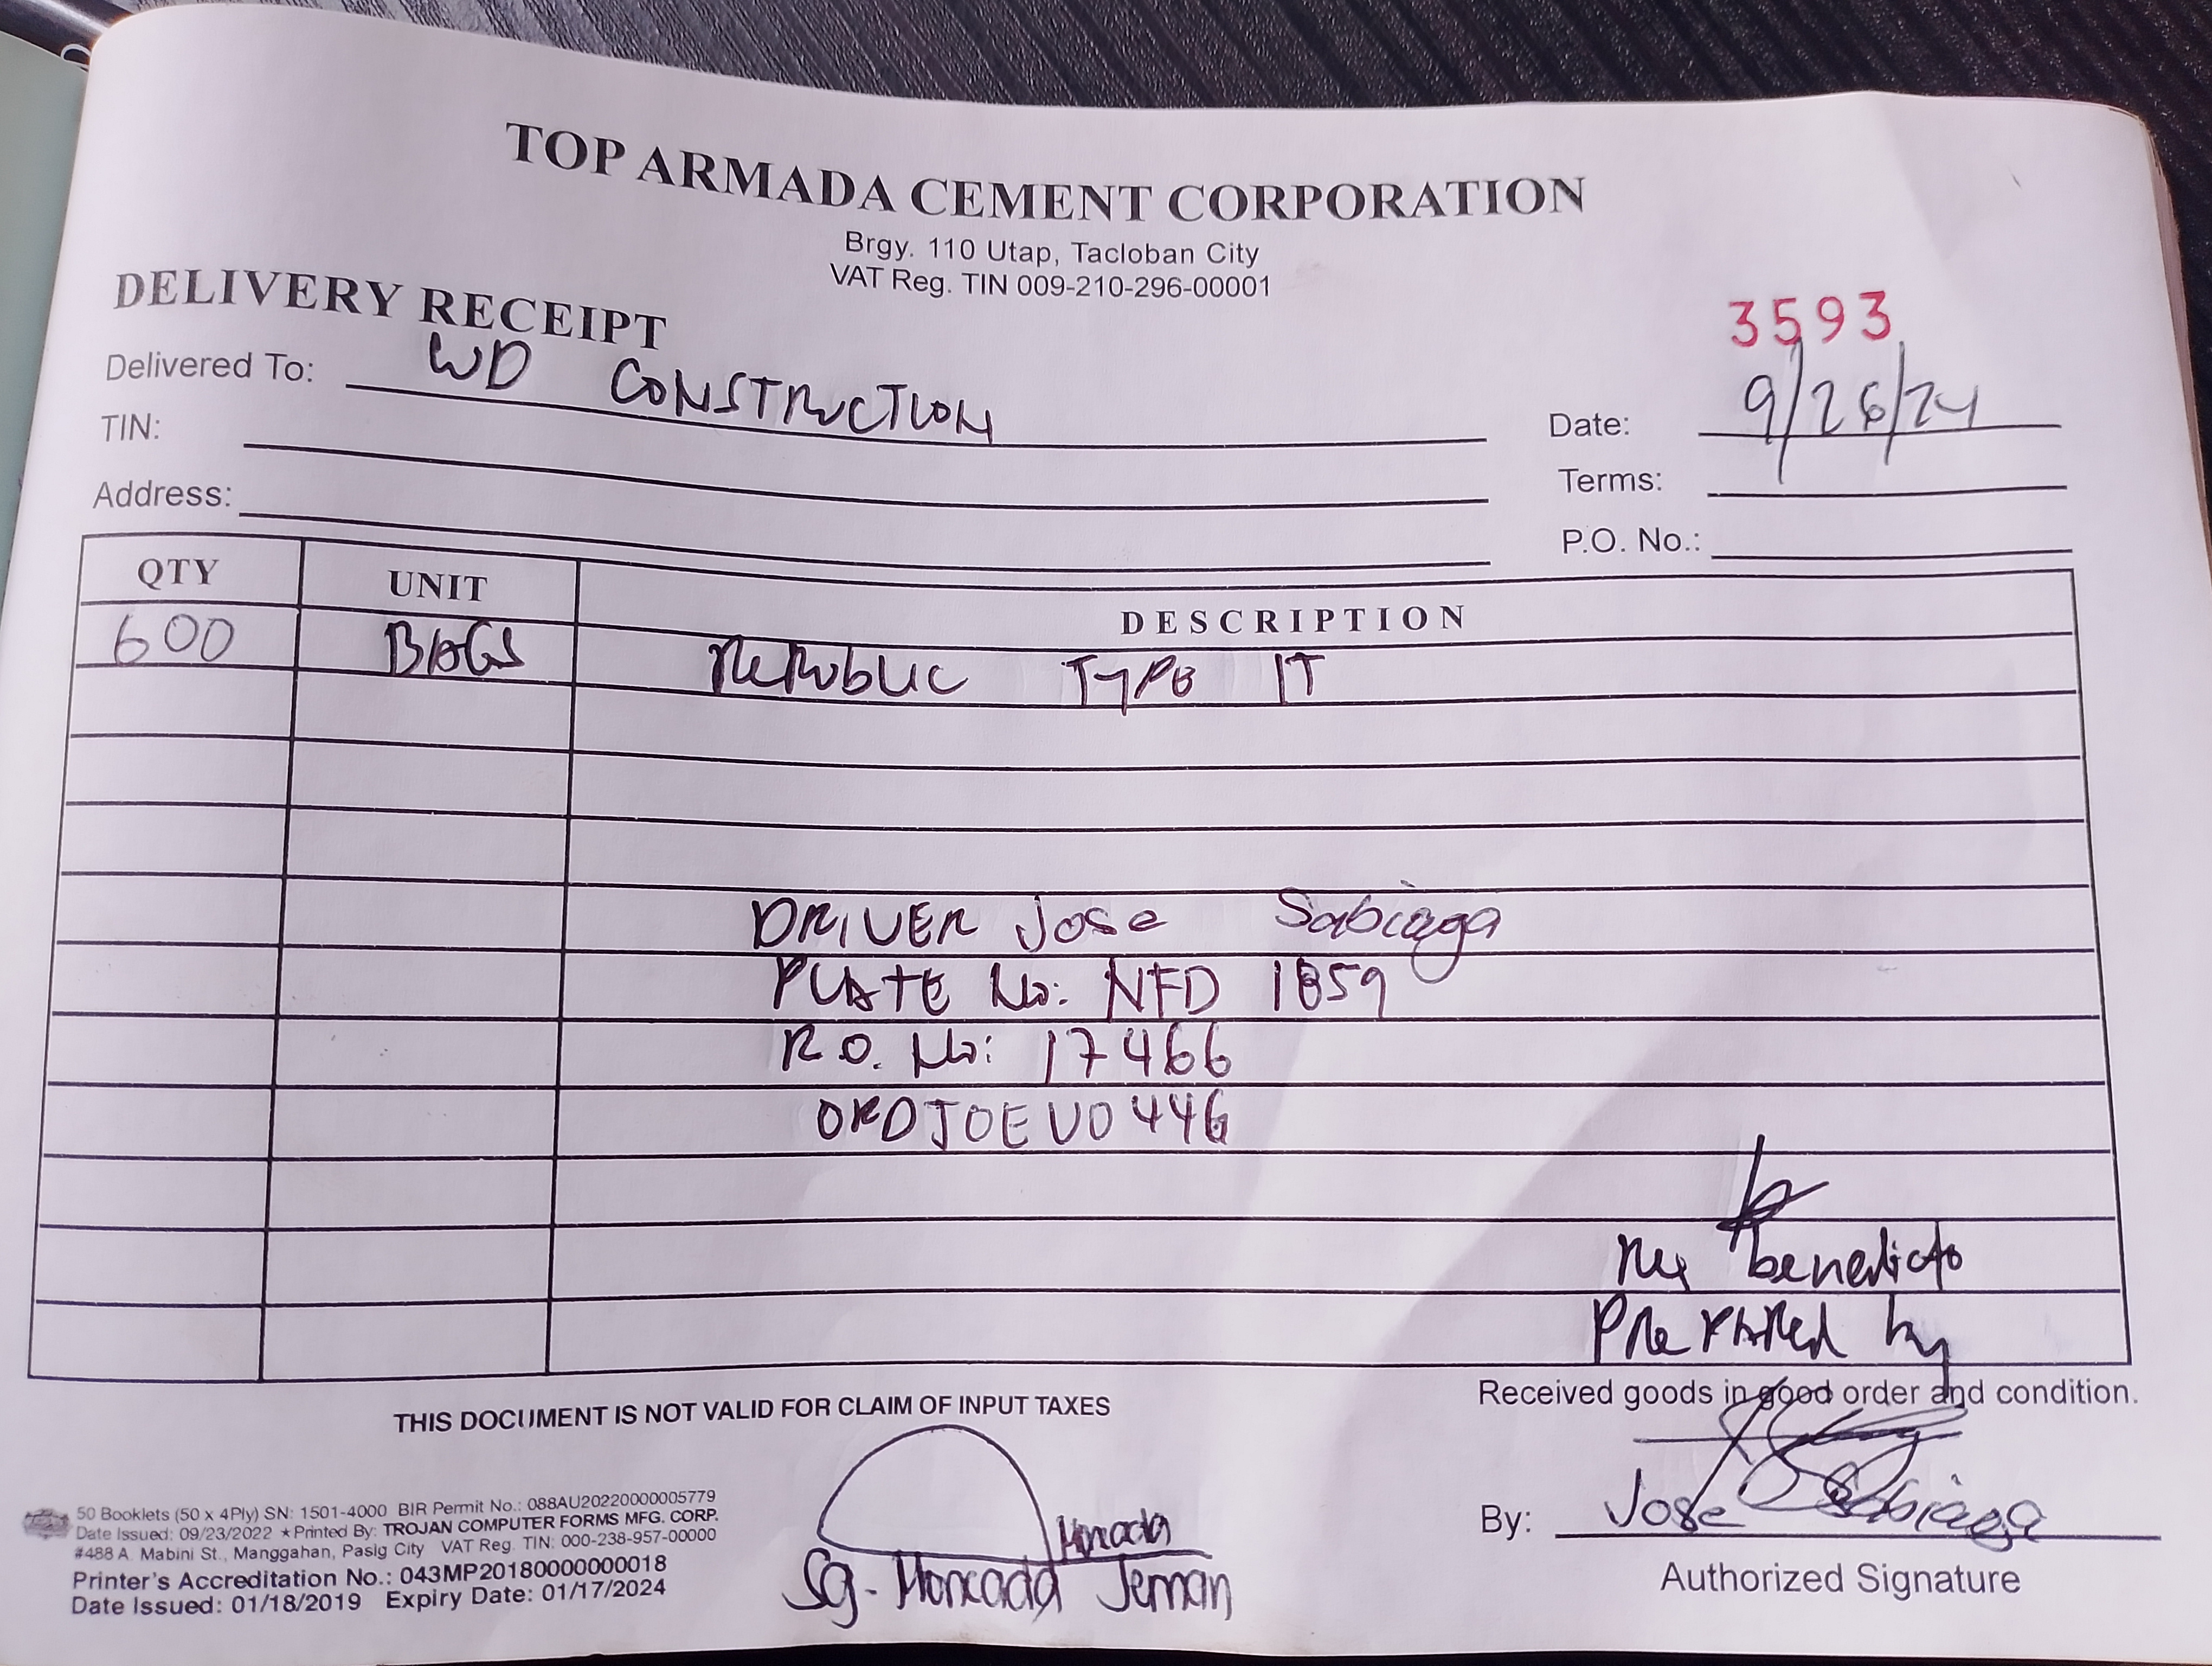 TOP ARMADA CEMENT CORPORATION
Brgy. 110 Utap, Tacloban City
VAT Reg. TIN 009-210-296-00001
DELIVERY RECEIPT
3593
Delivered To: WD CONSTRUCTION
Date: 9/26/24
TIN:
Terms:
Address:
P.O. No.:
QTY UNIT DESCRIPTION
600 BAGS REPUBLIC TYPE 1T
DRIVER Jose Sabiaga
PLATE No: NFD 1859
R.O. No: 17466
ORDJOEV0446
benedicto
PREPARED by
Received goods in good order and condition.
THIS DOCUMENT IS NOT VALID FOR CLAIM OF INPUT TAXES
By: Jose Sabiaga
Authorized Signature
Moncada
Sg. Moncada Jeman
50 Booklets (50 x 4Ply) SN: 1501-4000 BIR Permit No.: 088AU20220000005779
Date Issued: 09/23/2022 ★Printed By: TROJAN COMPUTER FORMS MFG. CORP.
#488 A. Mabini St., Manggahan, Pasig City VAT Reg. TIN: 000-238-957-00000
Printer's Accreditation No.: 043MP20180000000018
Date Issued: 01/18/2019 Expiry Date: 01/17/2024